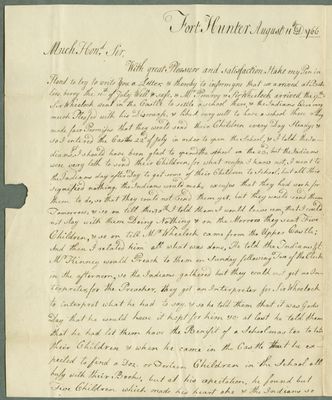 Fort Hunter August 11th AD 1766
Much Hond Sir,
With great Pleasure and satisfaction I take my Pen in
Hand to try to write you a Letter, & thereby to inform you that we arrived at
berry the 11th of July Well & safe, & Mr Pinnny & Sir Wheelock arrived the
Sir Wheelock went in the Castle to settle a school there, & the Indians being very
much Pleased with his Discourse, & liked very well to have a school there & they
made fair Promises that they would send their Children every Day steady, &
so I entered the Castle 22d of July in order to open the school, & I told the In-
dians I should have been glad to open the school in the but the Indians
were very loth to send their Children, for what reason I know not, I went to
the Indians day after Day to get some of their Children to school, but all this
signified nothing, the Indians would make excuses that they had work for
them to do, so that they could not send them yet, but they would send them
Tomorrow, & so on till
not stay with them Doing Nothing & on the Morrow they sent Five
Children, & so on till Mr Wheelock came from the Upper Castle;
And then I related him all what was done, He told the Indians if
Mr Pinney would Preach to them on Sunday following Two of the Clock
in the afternoon, so the Indians gathered but they could not get no In-
terpreter for the Preacher, they got an Interpreter for Sir Wheelock
to interpret what he had to say, & so he told them that it was Gods
Day that he would have it kept for him &c at last he told them
that he had let them have the Benefit of a Schoolmaster to teach
their Children & when he came in the Castle that he ex-
pected to find a Doz. or Sixteen Children in the School all
busy with their Books, but at his expectation, he found but
Five Children which made his heart ake & the Indians so